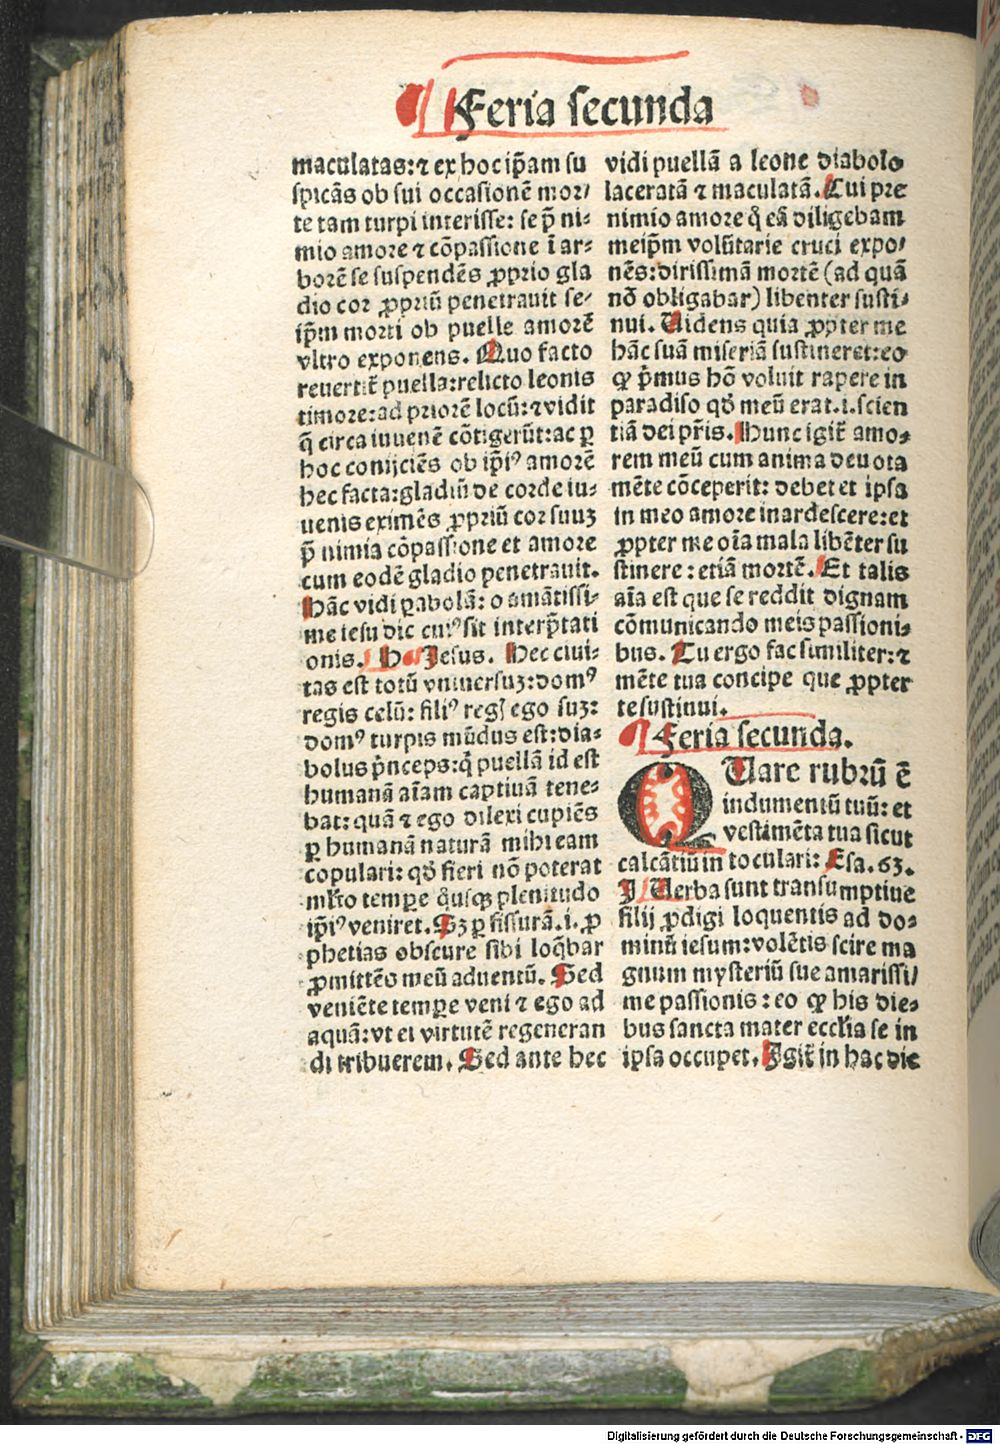 Feria secunda
maculatas: ⁊ ex hoc ip̃am su
spicãs ob sui occasionẽ mor/
te tam turpi interisse: se p̃ ni⸗
mio amore ⁊ cõpassione ĩ ar⸗
borẽ se suspendẽs ꝓprio gla
dio cor ꝓpriũ penetrauit se⸗
ip̃m morti ob puelle amorẽ
vltro exponens. Quo facto
reuertit̃ puella: relicto leonis
timore: ad priorẽ locũ: ⁊ vidit
q̃ circa iuuenẽ cõtigerũt: ac ꝑ
hoc conijciẽs ob ip̃iꝰ amorẽ
hec facta: gladiũ de corde iu⸗
uenis eximẽs ꝓpriũ cor suuꝫ
p̃ nimia cõpassione et amore
cum eodẽ gladio penetrauit.
Hãc vidi ꝑabolã: o amãtissi⸗
me iesu dic cuiꝰ sit interp̃tati
onis. Jesus. Hec ciui⸗
tas est totũ vniuersuꝫ: domꝰ
regis celũ: filiꝰ regꝭ ego suꝫ:
domꝰ turpis mũdus est: dia⸗
bolus p̃nceps: q̃ puellã id est
humanã aĩam captiuã tene⸗
bat: quã ⁊ ego dilexi cupiẽs
ꝑ humanã naturã mihi eam
copulari: qð fieri nõ poterat
ml̃to tempe q̃usqꝫ plenitudo
ip̃iꝰ veniret. Sꝫ ꝑ fissurã .i. ꝓ
phetias obscure sibi loq̃bar
ꝓmittẽs meũ aduentũ. Sed
veniẽte tempe veni ⁊ ego ad
aquã: vt ei virtutẽ regeneran
di tribuerem. Sed ante hec
vidi puellã a leone diabolo
laceratã ⁊ maculatã. Cui pre
nimio amore q̃ eã diligebam
meip̃m volũtarie cruci expo/
nẽs: dirissimã mortẽ (ad quã
nõ obligabar) libenter susti⸗
nui. Uidens quia ꝓpter me
hãc suã miseriã sustineret: eo
ꝙ p̃mus hõ voluit rapere in
paradiso qð meũ erat .i. scien
tiã dei pr̃is. Hunc igit̃ amo⸗
rem meũ cum anima deuota
mẽte cõceperit: debet et ipsa
in meo amore inardescere: et
ꝓpter me oĩa mala libẽter su
stinere: etiã mortẽ. Et talis
aĩa est que se reddit dignam
cõmunicando meis passioni⸗
bus. Tu ergo fac similiter: ⁊
mẽte tua concipe que ꝓpter
te sustinui.
Feria secunda.
QUare rubrũ ẽ
indumentũ tuũ: et
vestimẽta tua sicut
calcãtiũ in toculari: Esa. 63.
Uerba sunt transumptiue
filij ꝓdigi loquentis ad do⸗
minũ iesum: volẽtis scire ma
gnum mysteriũ sue amarissi/
me passionis: eo ꝙ his die⸗
bus sancta mater eccl̃ia se in
ipsa occupet. Igit̃ in hac die
Digitalisierung gefördert durch die Deutsche Forschungsgemeinschaft - DFG